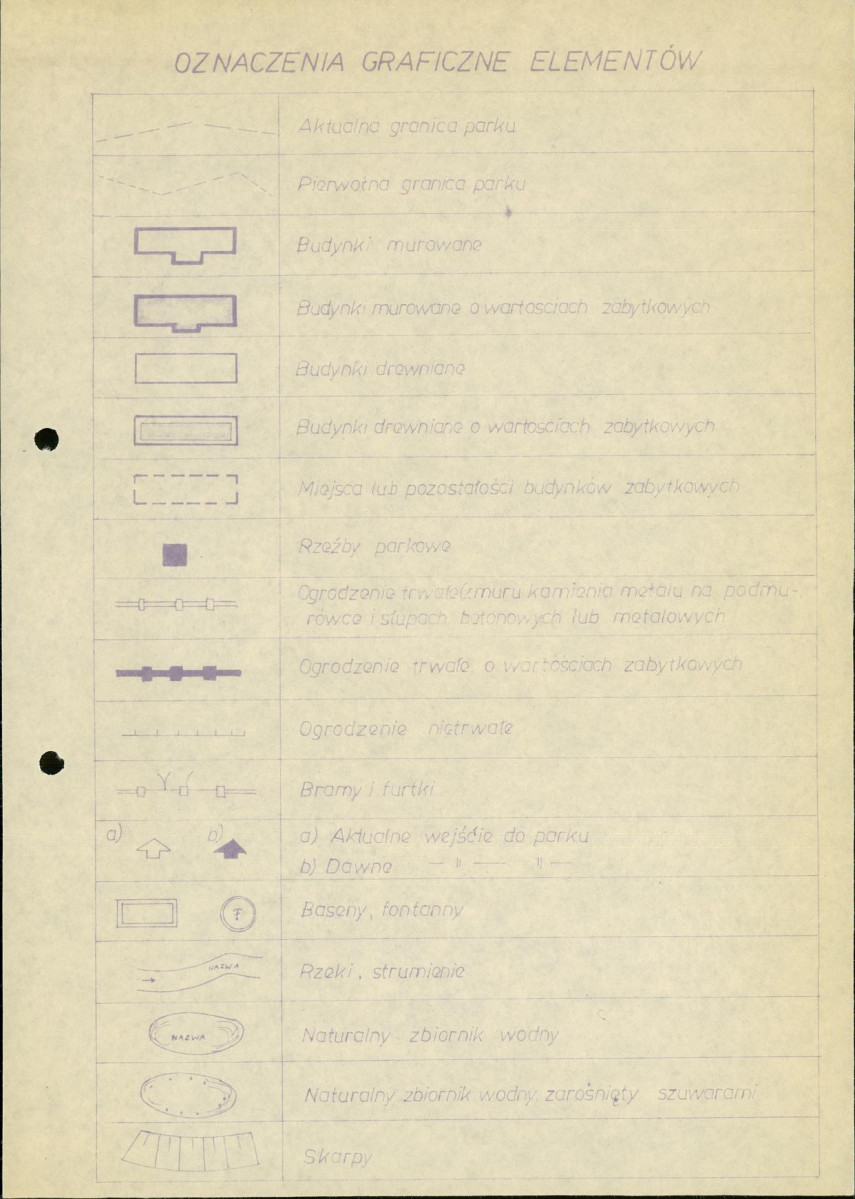 OZNACZENIA GRAFICZNE ELEMENTÓW
Aktualna granica parku
Pierwotna granica parku
Budynki murowane
Budynki murowane o wartosciach zabytkowych
Budynki drewniane
Budynki drewniane o wartosciach zabytkowych
Miejsca lub pozostałości budynków zabytkowych
Rzeźby parkowe
Ogrodzenie trwałe (z muru kamienia metalu na podmu-
rówce i słupach betonowych lub metalowych
Ogrodzenie trwałe o wartościach zabytkowych
Ogrodzenie nietrwałe
Bramy i furtki
a) b) a) Aktualne wejście do parku
b) Dawne — " — — " —
F Baseny, fontanny
NAZWA Rzeki, strumienie
NAZWA Naturalny zbiornik wodny
Naturalny zbiornik wodny zarośnięty szuwarami
Skarpy